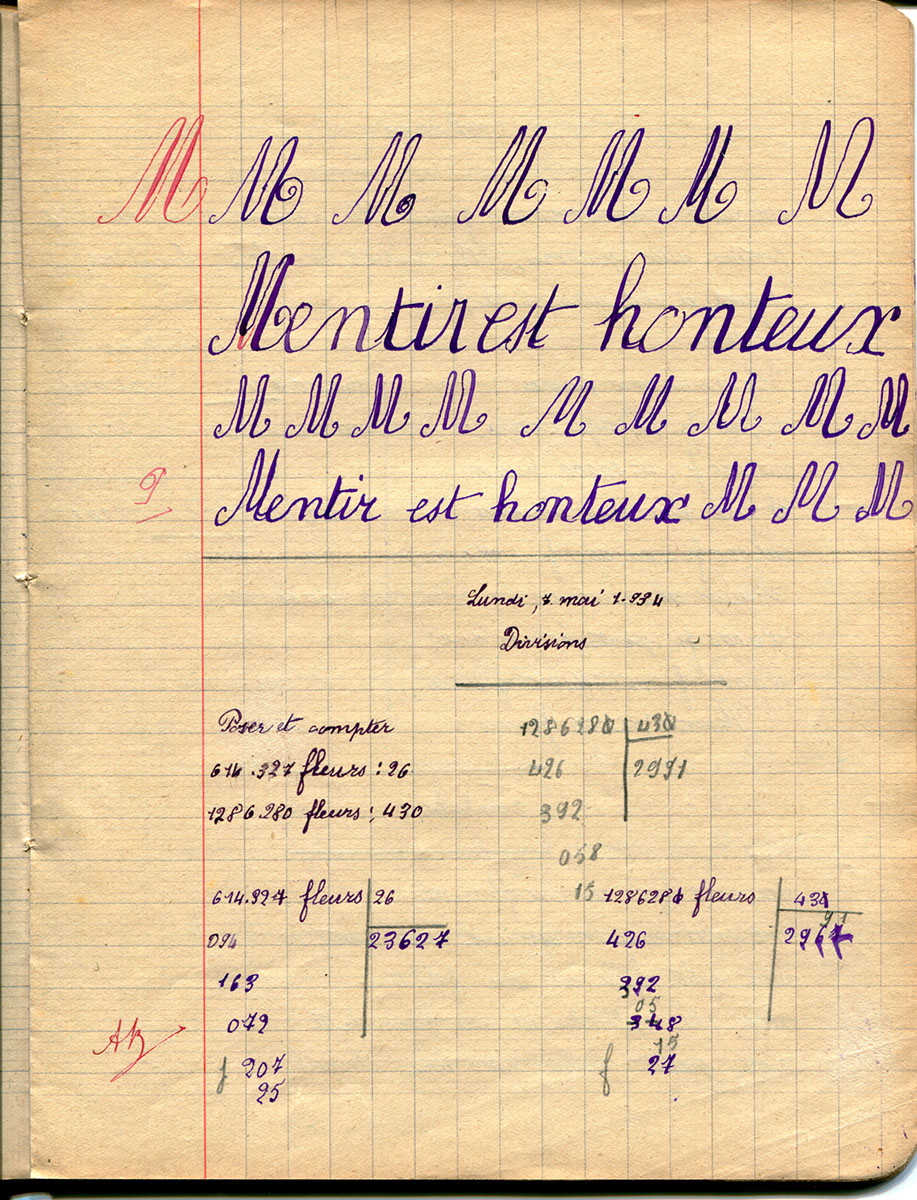 M M M M M M M
Mentir est honteux
M M M M M M M M M
9 Mentir est honteux M M M
Lundi, 7 mai 1934
Divisions
Poser et compter
614.327 fleurs : 26
1286.280 fleurs : 430
1286280 430
426 2991
392
058
15
614.327 fleurs 26
094 23627
163
072
207
25
1286280 fleurs 430
426 2967
91
392
05
348
15
27
f
f